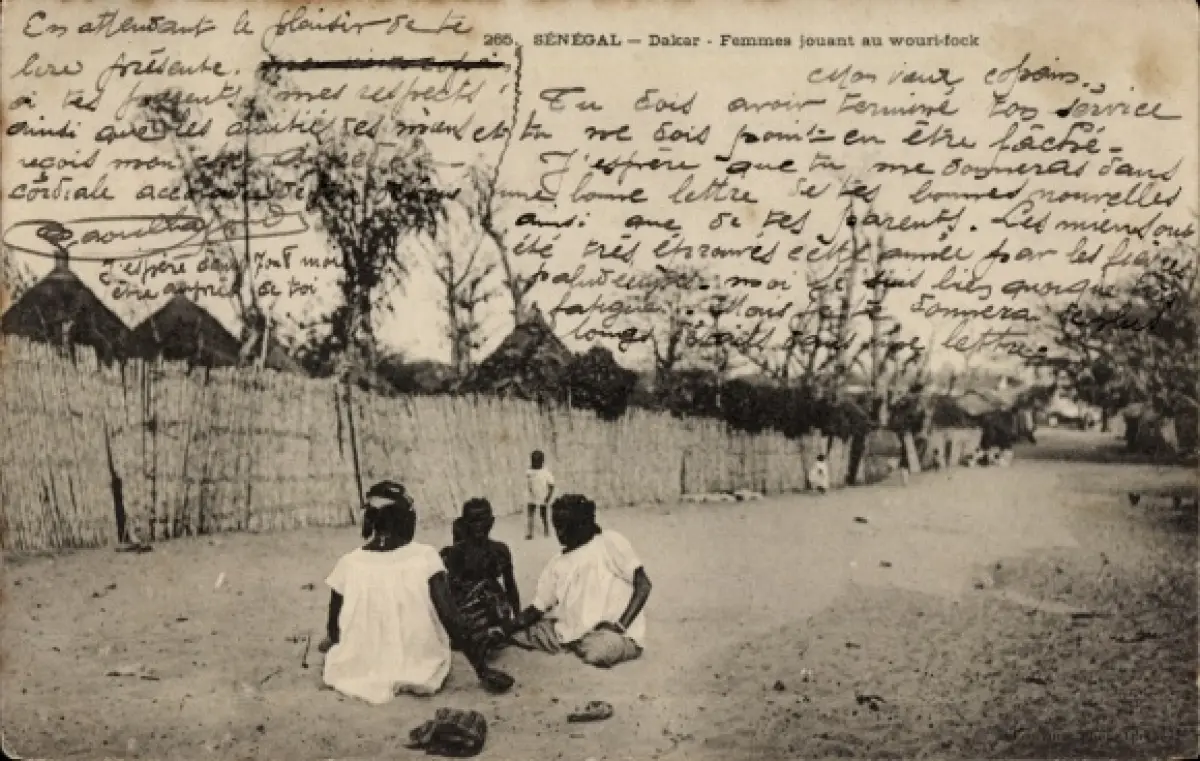 265. SÉNÉGAL — Dakar - Femmes jouant au wouri-fock
Mon vieux copain.
Tu dois avoir terminé ton service
et tu me dois point en être fâché -
J'espère que tu me donneras dans
une bonne lettre de tes bonnes nouvelles
ainsi que de tes parents. Les miens ont
été très éprouvés cette année par les fièvres
paludéennes. moi je suis bien quoique
fatigué. Mais je te donnerai de plus
longs détails dans une lettre
En attendant le plaisir de te
lire présente.
à tes parents mes respects
ainsi que les amitiés des miens
reçois mon cher
cordiale
J'espère dans tout moi
être auprès de toi